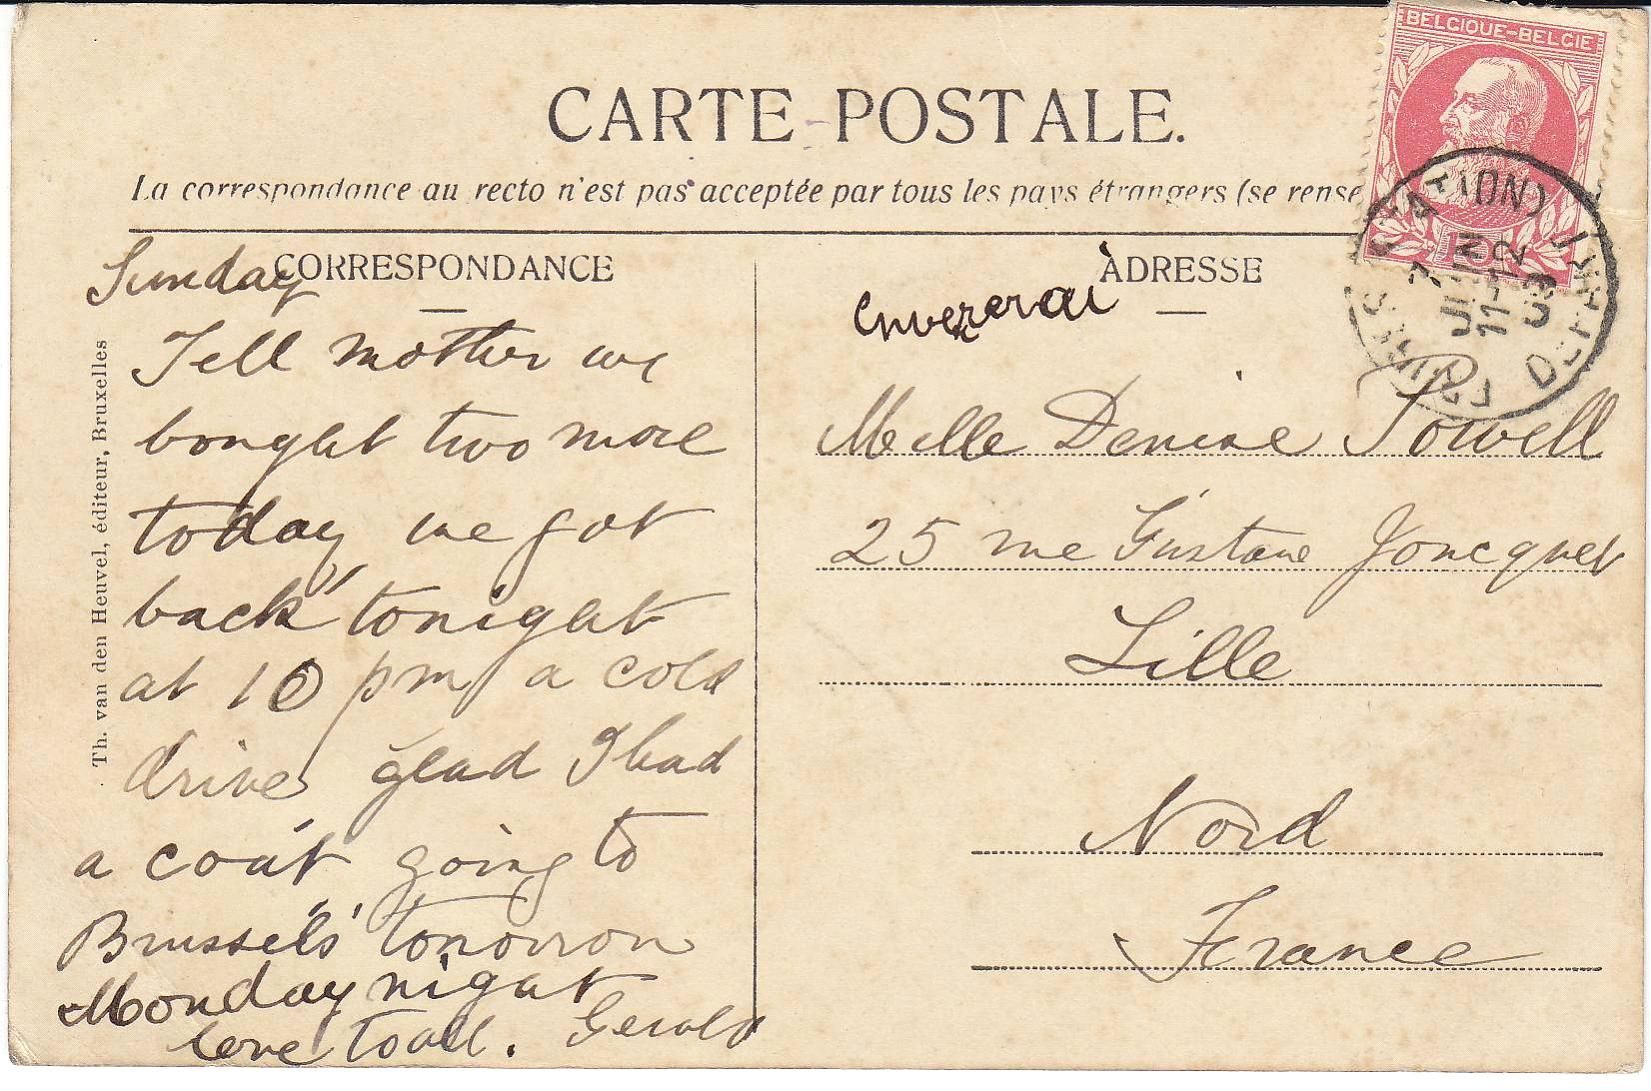 CARTE POSTALE.
La correspondance au recto n'est pas acceptée par tous les pays étrangers (se rense
BELGIQUE-BELGIE
10
7
JUIN
11-12
CORRESPONDANCE
ADRESSE
Th. van den Heuvel, éditeur, Bruxelles
Sunday
Tell mother we
bought two more
today, we got
back tonight
at 10 pm a cold
drive glad I had
a coat going to
Brussels tomorrow
Monday night
love to all. Gerald
Melle Denise Powell
25 rue Gustave Joncquet
Lille
Nord
France